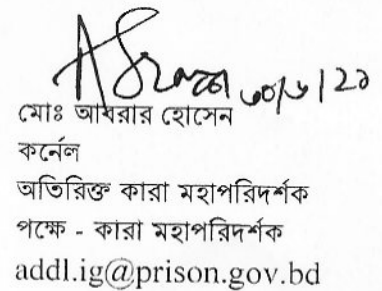 ৩০/৬/২১
মোঃ আবরার হোসেন
কর্নেল
অতিরিক্ত কারা মহাপরিদর্শক
পক্ষে - কারা মহাপরিদর্শক
addl.ig@prison.gov.bd